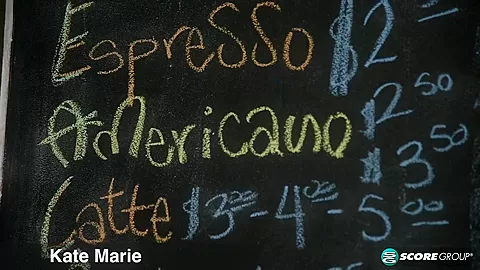 Espresso $2
Americano $2 50
$3 50
Latte $3 00 - 4 00 - 5 00
Kate Marie
SCORE GROUP